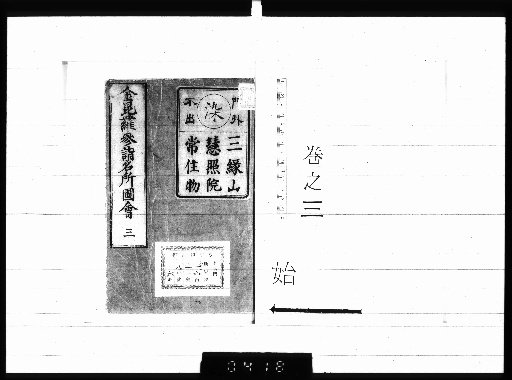 巻之三
始
門外
不出
染
三縁山
慧照院
常住物
金毘羅参詣名所圖會 三
0418